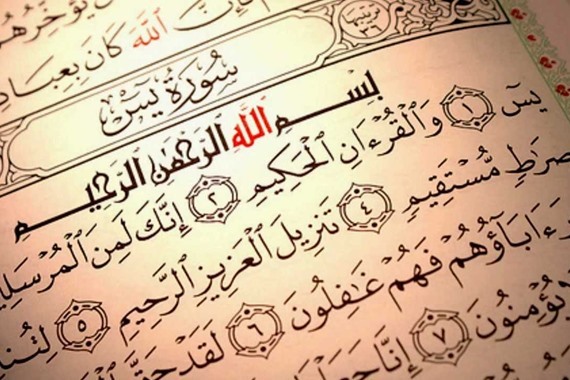 يُؤَخِّرُهُمْ
فَإِنَّ ٱللَّهَ كَانَ بِعِبَادِ
سُورَةُ يسٓ
بِسْمِ ٱللَّهِ ٱلرَّحْمَٰنِ ٱلرَّحِيمِ
يسٓ ١ وَٱلْقُرْءَانِ ٱلْحَكِيمِ ٢ إِنَّكَ لَمِنَ ٱلْمُرْسَلِي
صِرَٰطٍ مُّسْتَقِيمٍ ٤ تَنزِيلَ ٱلْعَزِيزِ ٱلرَّحِيمِ ٥ لِتُن
ءَابَآؤُهُمْ فَهُمْ غَٰفِلُونَ ٦ لَقَدْ حَقَّ
يُؤْمِنُونَ ٧ إِنَّا جَعَل